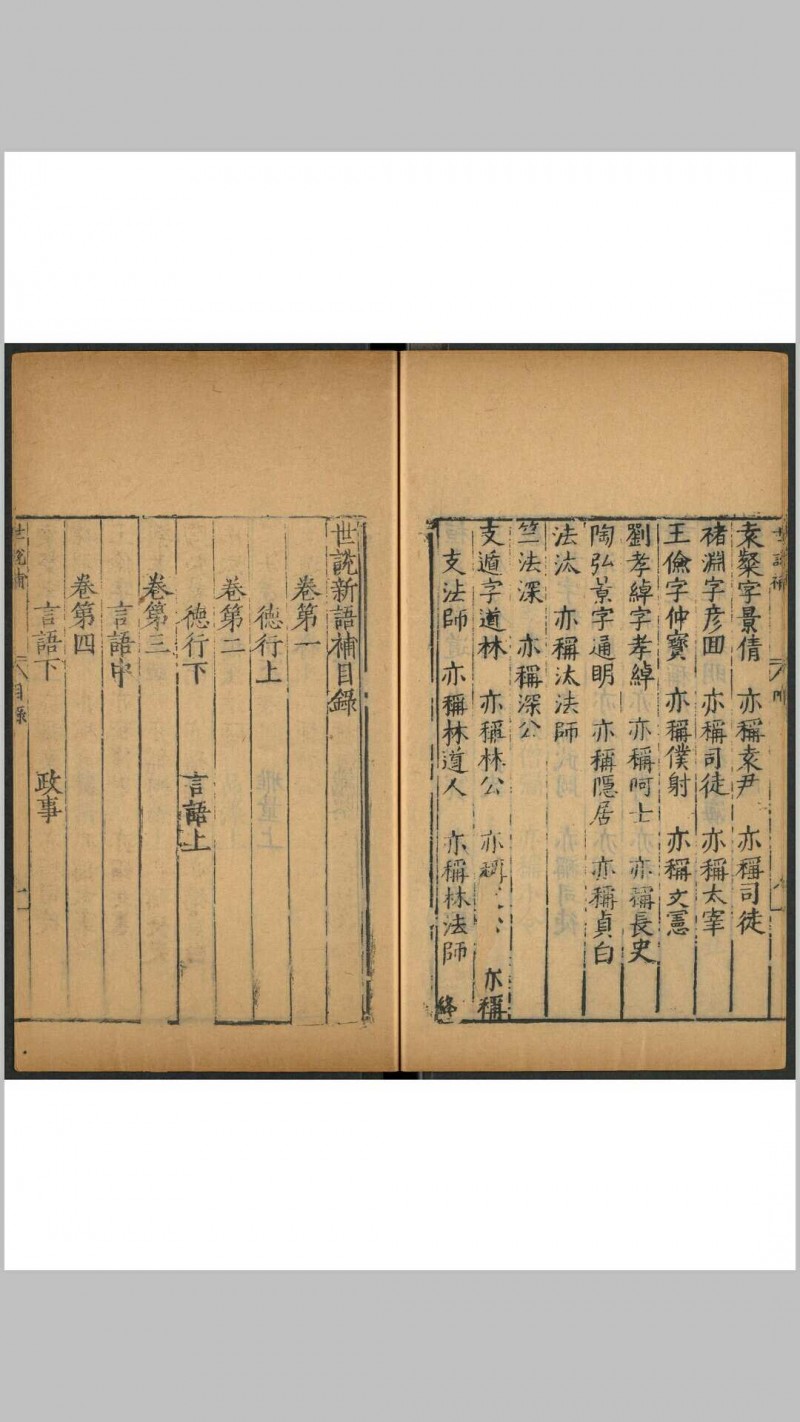 袁粲字景倩　亦稱袁尹　亦稱司徒
褚淵字彦回　亦稱司徒　亦稱太宰
王儉字仲寳　亦稱僕射　亦稱文憲
劉孝綽字孝綽　亦稱阿士　亦稱長史
陶弘景字通明　亦稱隠居　亦稱貞白
法汰　亦稱汰法師
竺法深　亦稱深公
支遁字道林　亦稱林公　亦稱　公　亦稱
支法師　亦稱林道人　亦稱林法師　終
世說新語補目錄
卷第一
德行上
卷第二
德行下　言語上
卷第三
言語中
卷第四
言語下　政事
世說補　目錄